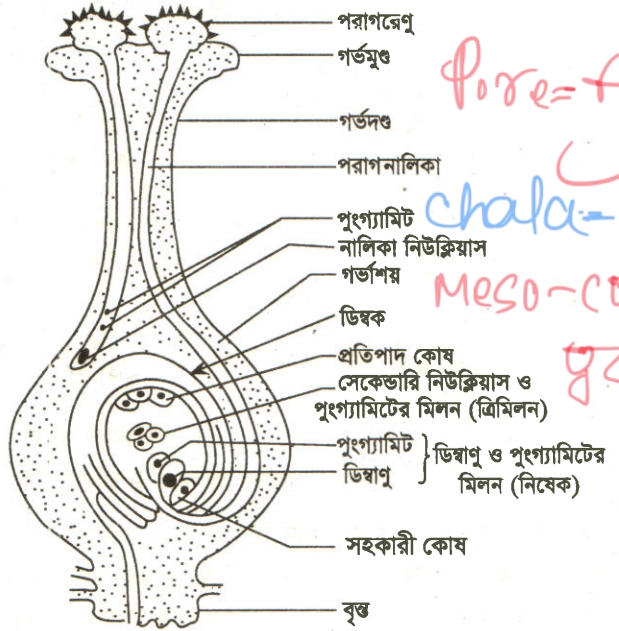 পরাগরেণু
গর্ভমুণ্ড
গর্ভদণ্ড
পরাগনালিকা
পুংগ্যামিট
নালিকা নিউক্লিয়াস
গর্ভাশয়
ডিম্বক
প্রতিপাদ কোষ
সেকেন্ডারি নিউক্লিয়াস ও
পুংগ্যামিটের মিলন (ত্রিমিলন)
পুংগ্যামিট
ডিম্বাণু
ডিম্বাণু ও পুংগ্যামিটের
মিলন (নিষেক)
সহকারী কোষ
বৃন্ত
Pore=
chala=
Meso-